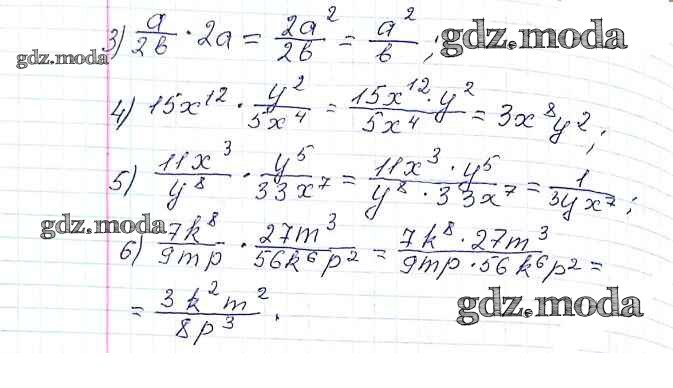 3) a/2b · 2a = 2a²/2b = a²/b ;
gdz.moda
gdz.moda
4) 15x¹² · y²/5x⁴ = 15x¹² · y²/5x⁴ = 3x⁸y² ;
5) 11x³/y⁸ · y⁵/33x⁷ = 11x³ · y⁵/y⁸ · 33x⁷ = 1/3yx⁷ ;
gdz.moda
6) 7k⁸/9mp · 27m³/56k⁶p² = 7k⁸ · 27m³/9mp · 56k⁶p² =
= 3k²m²/8p³ .
gdz.moda